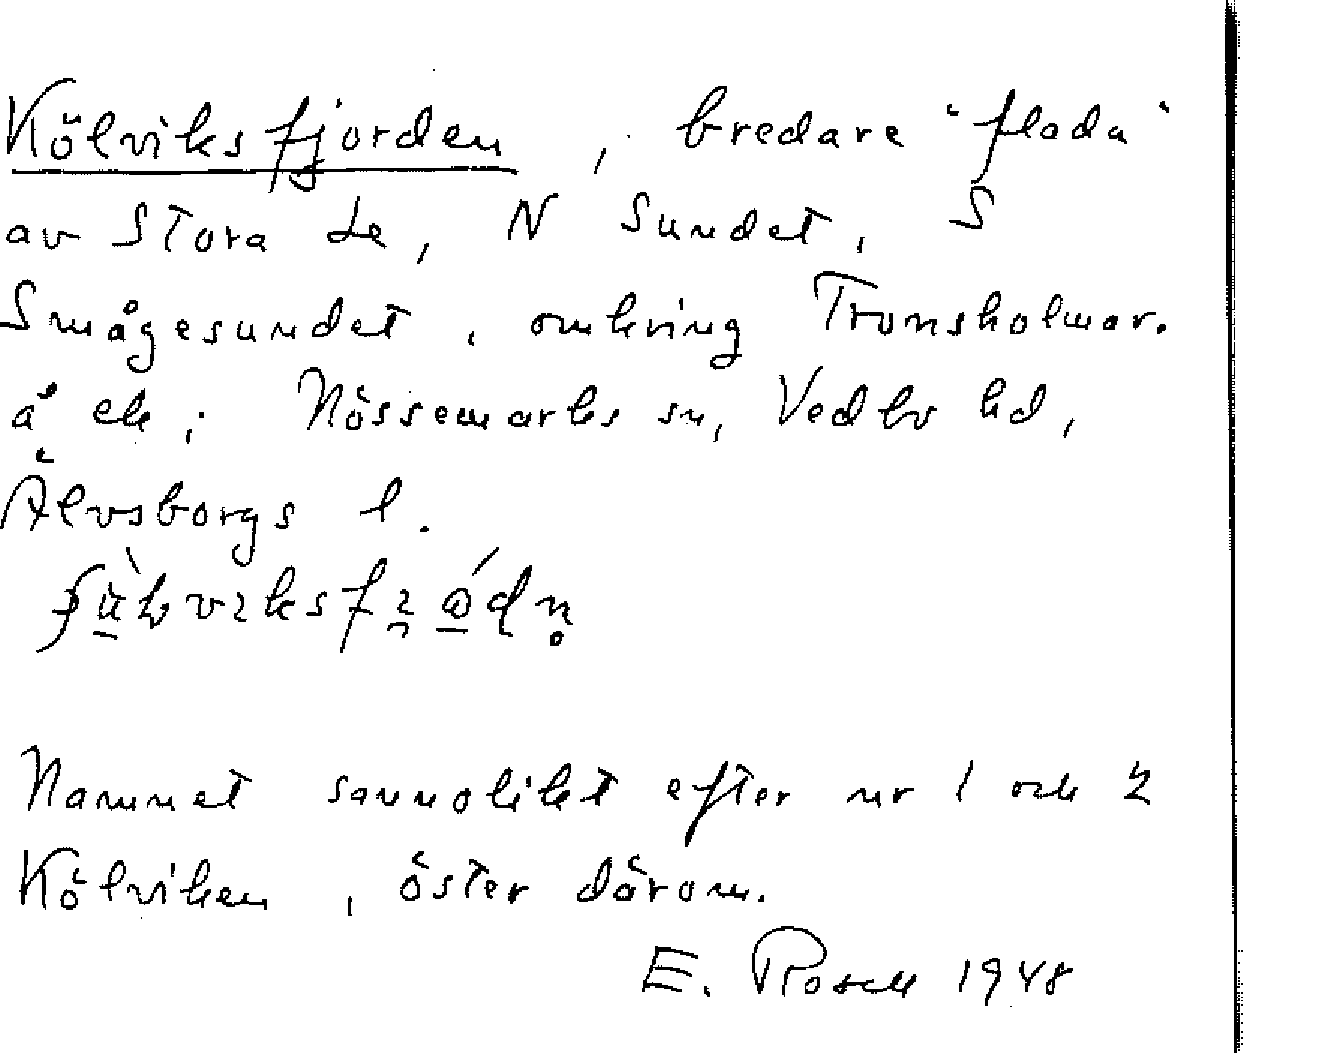 Kölviksfjorden, bredare "flada"
av Stora Le, N Sundet, S
Smågesundet, omkring Tronsholmar.
å ek; Nössemarks sn, Vedbo hd,
Älvsborgs l.
Namnet sannolikt efter nr 1 och 2
Kölviken, öster därom.
E. Rosell 1948